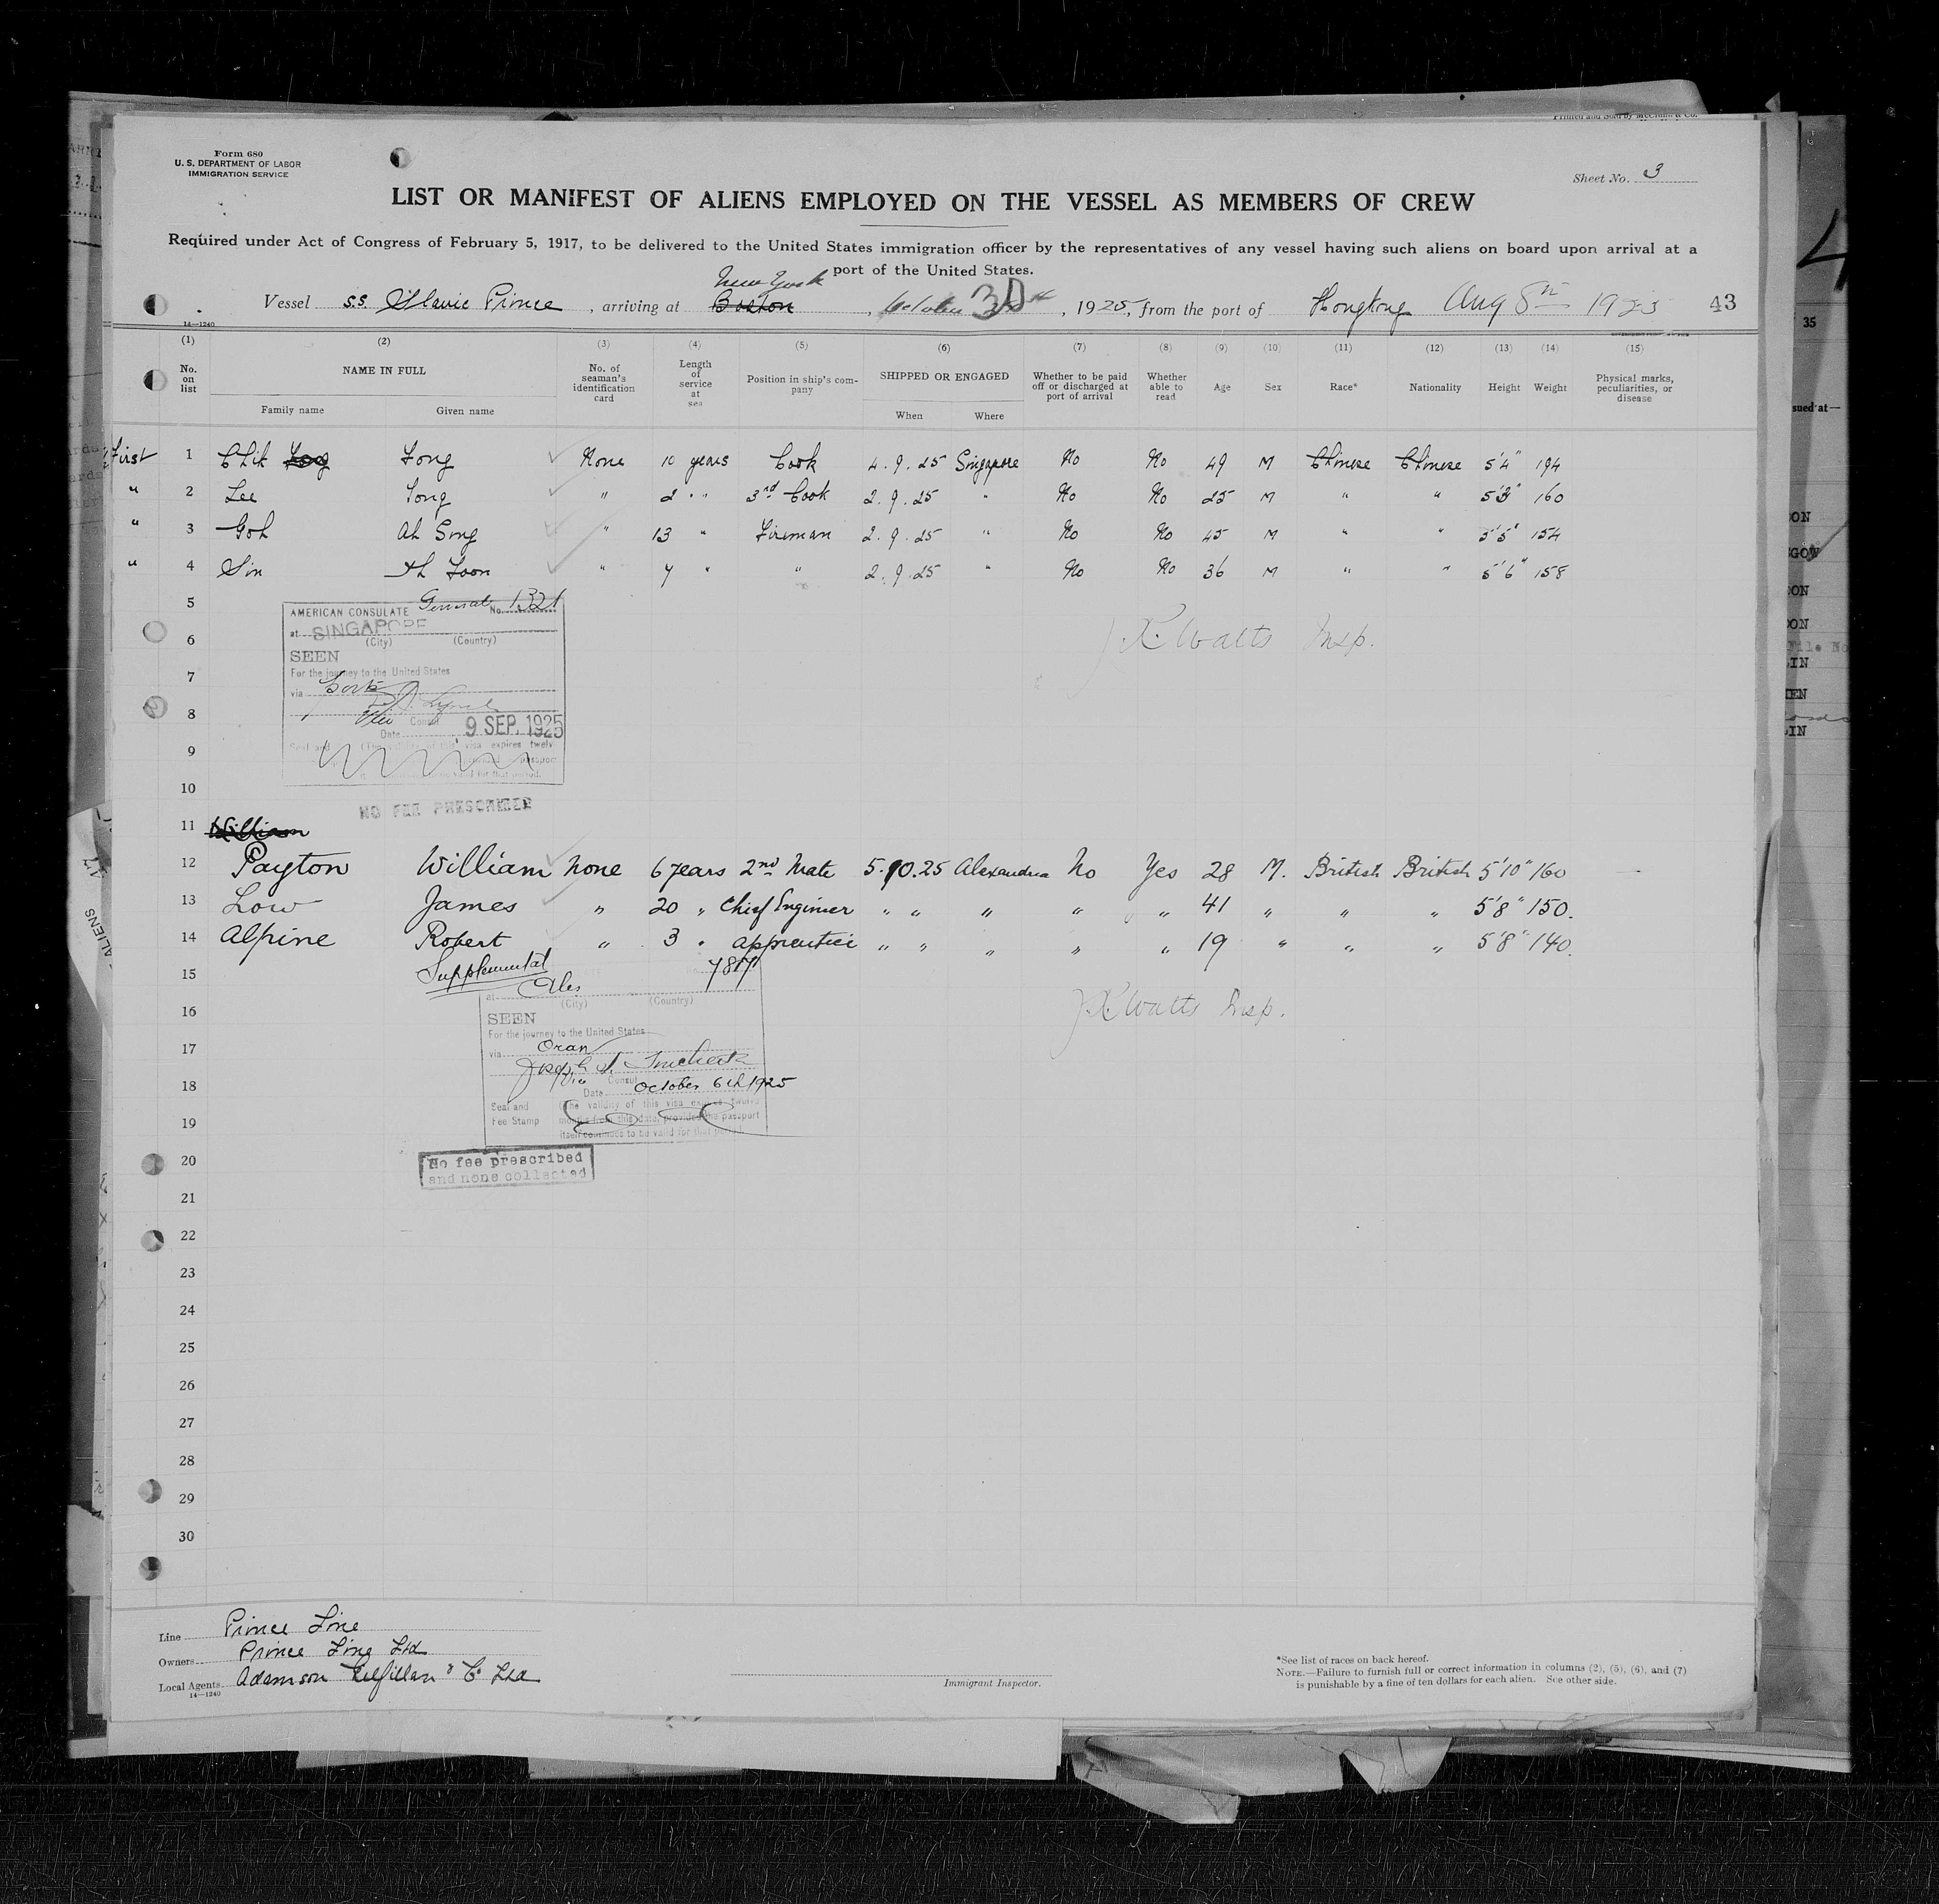 Printed and Sold by
Form 680
U. S. DEPARTMENT OF LABOR
IMMIGRATION SERVICE
Sheet No. 3
LIST OR MANIFEST OF ALIENS EMPLOYED ON THE VESSEL AS MEMBERS OF CREW
Required under Act of Congress of February 5, 1917, to be delivered to the United States immigration officer by the representatives of any vessel having such aliens on board upon arrival at a
port of the United States.
New York
Vessel SS. Slavic Prince, arriving at Boston, October 30th, 1925, from the port of Hongkong Aug 8th 1925 43
14—1240
(1) (2) (3) (4) (5) (6) (7) (8) (9) (10) (11) (12) (13) (14) (15)
No. on list NAME IN FULL Family name Given name No. of seaman's identification card Length of service at sea Position in ship's company SHIPPED OR ENGAGED When Where Whether to be paid off or discharged at port of arrival Whether able to read Age Sex Race* Nationality Height Weight Physical marks, peculiarities, or disease
First 1 Chik Fong None 10 years Cook 4.9.25 Singapore No No 49 M Chinese Chinese 5'4" 194
" 2 Lee Yong " 2 " 3rd Cook 2.9.25 " No No 25 M " " 5'3" 160
" 3 Goh Ah Sing " 13 " Fireman 2.9.25 " No No 45 M " " 5'5" 154
" 4 Sin Ah Foon " 7 " " 2.9.25 " No No 36 M " " 5'6" 158
5
AMERICAN CONSULATE General No. 1321
at SINGAPORE
(City) (Country)
6
J.K. Watts Insp.
SEEN
For the journey to the United States
7
via
8
Vice Consul
Date 9 SEP. 1925
9
10
NO FEE PRESCRIBED
11 William
12 Payton William None 6 years 2nd Mate 5.10.25 Alexandria No Yes 28 M. British British 5'10" 160
13 Low James " 20 " Chief Engineer " " " " " 41 " " " 5'8" 150.
14 Alpine Robert " 3 " apprentice " " " " " 19 " " " 5'8" 140.
15 Supplemental 7817
at Alex
(City) (Country)
16
J.K. Watts Insp.
SEEN
For the journey to the United States
17
via Oran
18
Vice Consul
Date October 6th 1925
Seal and Fee Stamp (The validity of this visa expires twelve
19
months from this date, provided the passport
itself continues to be valid for that period.
20
No fee prescribed
and none collected
21
22
23
24
25
26
27
28
29
30
Line Prince Line
Owners Prince Line Ltd
Local Agents Adamson Gilfillan & Co Ltd
14—1240
Immigrant Inspector.
*See list of races on back hereof.
NOTE.—Failure to furnish full or correct information in columns (2), (5), (6), and (7)
is punishable by a fine of ten dollars for each alien. See other side.
35
sued at—
ALIENS